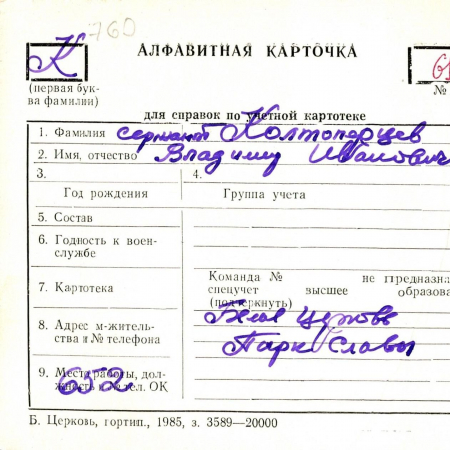 760
К
АЛФАВИТНАЯ КАРТОЧКА
(первая бук-
ва фамилии)
№
для справок по учетной картотеке
1. Фамилия сержант Колтопорцев
2. Имя, отчество Владимир Иванович
3.
Год рождения
4.
Группа учета
5. Состав
6. Годность к воен-
службе
7. Картотека
Команда № не предназна
спецучет высшее образова
(подчеркнуть)
8. Адрес м-житель-
ства и № телефона
Белая Церковь
Парк Славы
9. Место работы, дол-
жность и № тел. ОК
652
Б. Церковь, гортип., 1985, з. 3589—20000